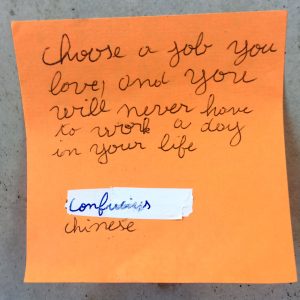 Choose a job you
love, and you
will never have
to work a day
in your life
Confucius
chinese